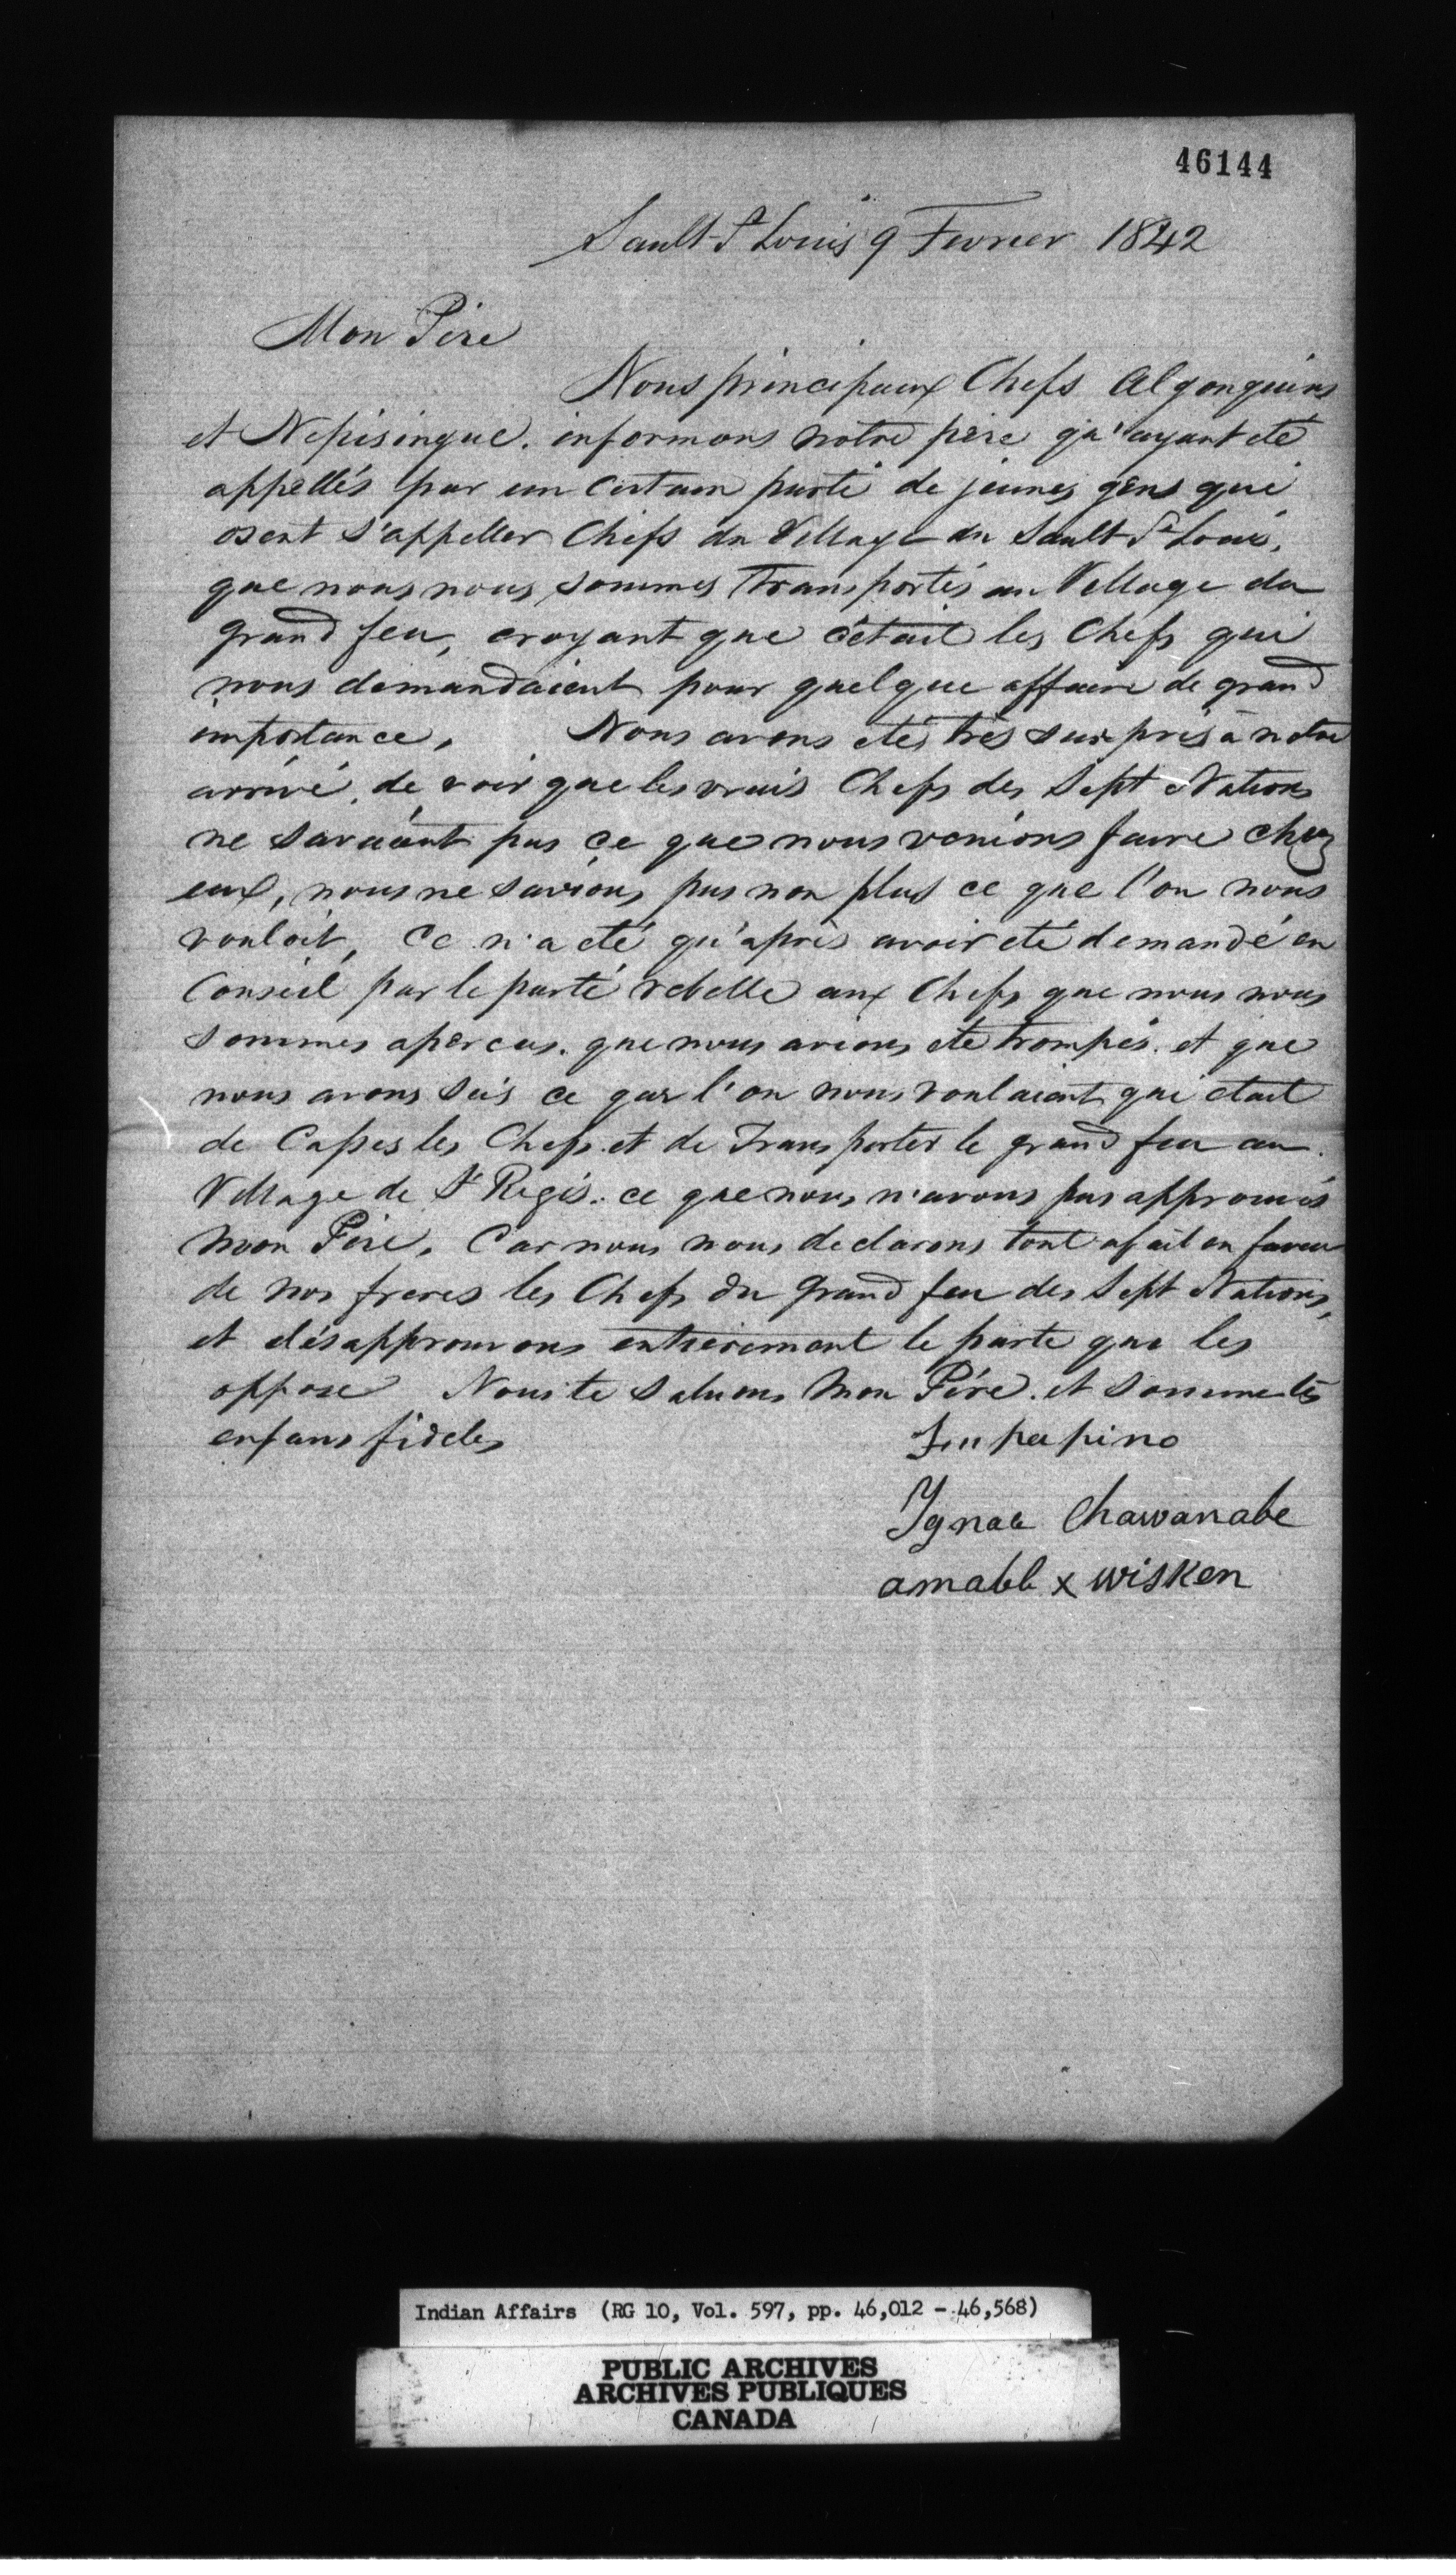 46144
Sault St Louis 9 Fevrier 1842
Mon Père
Nous principaux Chefs Algonquins
et Nepisingue. informons notre père qu'ayant eté
appellés par un certain parti de jeunes gens qui
osent s'appeller Chefs du Village du Sault St Louis,
que nous nous sommes transportés au Village du
grand feu, croyant que c'était les Chefs qui
nous demandaient pour quelque affaire de grand
importance. Nous avons etés très surpris à notre
arrivé, de voir que les vrais Chefs des Sept Nations
ne savaient pas ce que nous venions faire chez
eux, nous ne savions pas non plus ce que l'on nous
vouloit, Ce n'a eté qu'après avoir eté demandé en
Conseil par le parté rebelle aux Chefs que nous nous
sommes apercus. que nous avions eté trompés. et que
nous avons sus ce que l'on nous voulaient qui etait
de Casses les Chefs. et de Transporter le grand feu au
Village de St Regis. ce que nous n'avons pas approuvés
Mon Père, Car nous nous declarons tout afait en faveur
de nos freres les Chefs du grand feu des Sept Nations,
et désapprouvons entierement le parte que les
oppose Nous te saluons Mon Père. et somme tes
enfans fideles
papino
Ygnace Chawanabe
amable x wisken
Indian Affairs (RG 10, Vol. 597, pp. 46,012 - 46,568)
PUBLIC ARCHIVES
ARCHIVES PUBLIQUES
CANADA